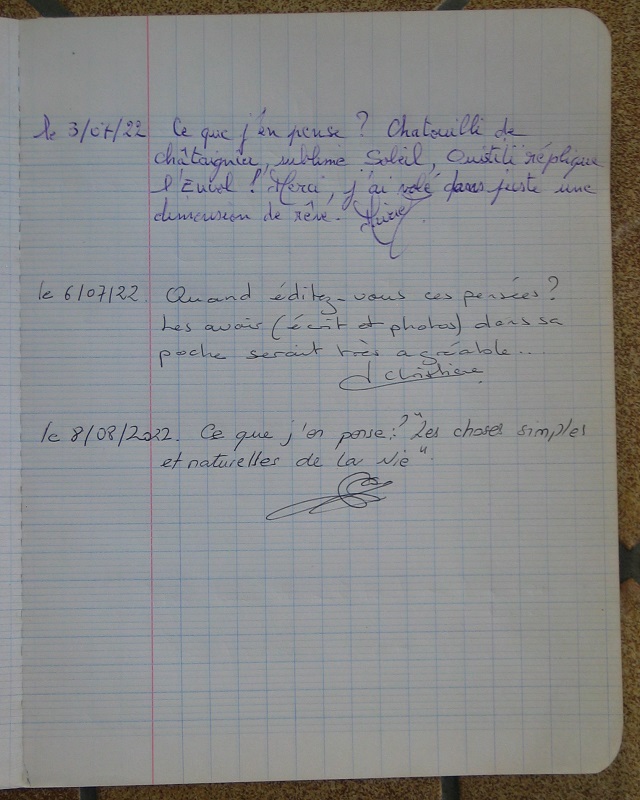 le 3/07/22 Ce que j'en pense ? Chatouilli de
châtaignier, sublime Soleil, Ouistiti réplique
l'Envol ! Merci, j'ai volé dans juste une
dimension de rêve.
le 6/07/22. Quand éditez-vous ces pensées ?
Les avoir (écrit et photos) dans sa
poche serait très agréable...
Christiane
le 8/08/2022. Ce que j'en pense : ? "Les choses simples
et naturelles de la vie".